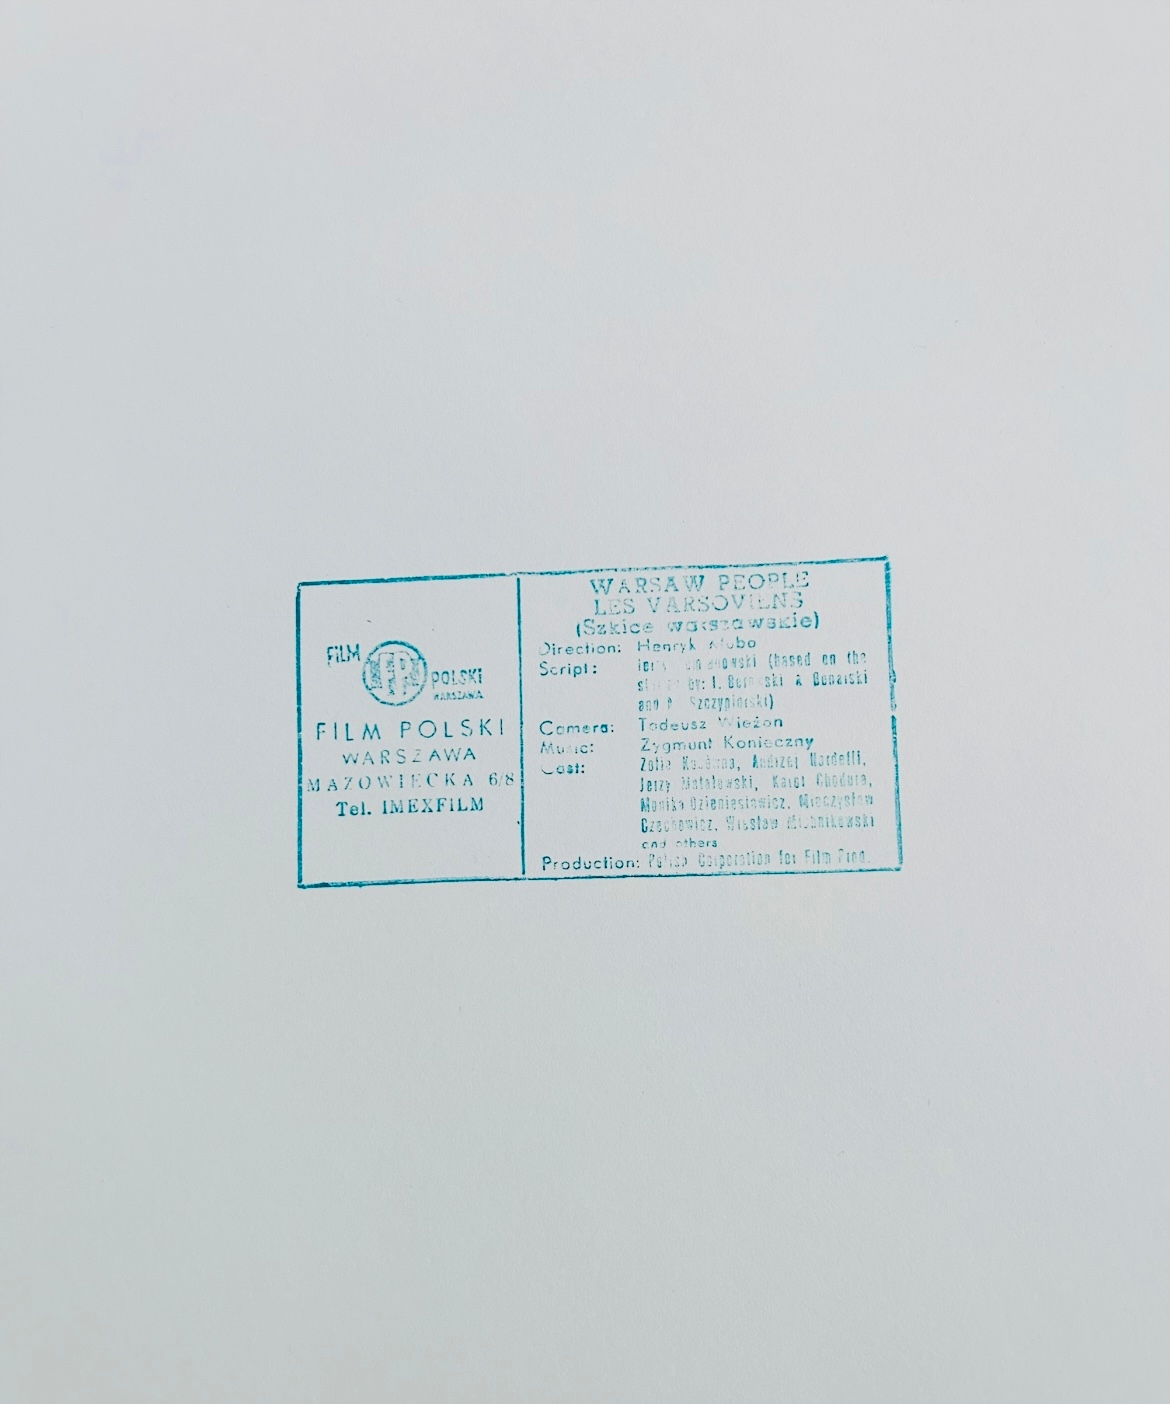 FILM
POLSKI
WARSZAWA
FILM POLSKI
WARSZAWA
MAZOWIECKA 6/8
Tel. IMEXFILM
WARSAW PEOPLE
LES VARSOVIENS
(Szkice warszawskie)
Direction: Henryk
Script: (based on the
by: I. &
and Szczypiorski)
Camera: Tadeusz Wieżan
Music: Zygmunt Konieczny
Cast: Zofia Andrzej Nardelli,
Jerzy Karol
Monika Dzienisiewicz, Mieczysław
Czechowicz, Wiesław Michnikowski
and others
Production: Polish Corporation for Film Prod.